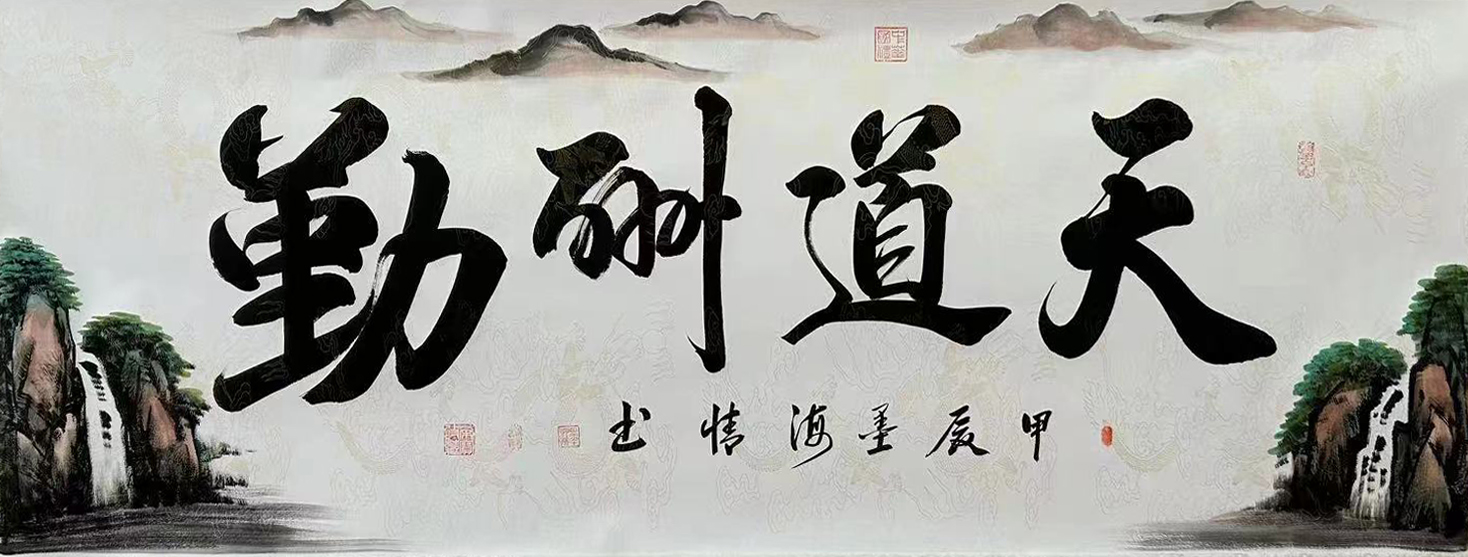 天道酬勤
甲辰墨海情书